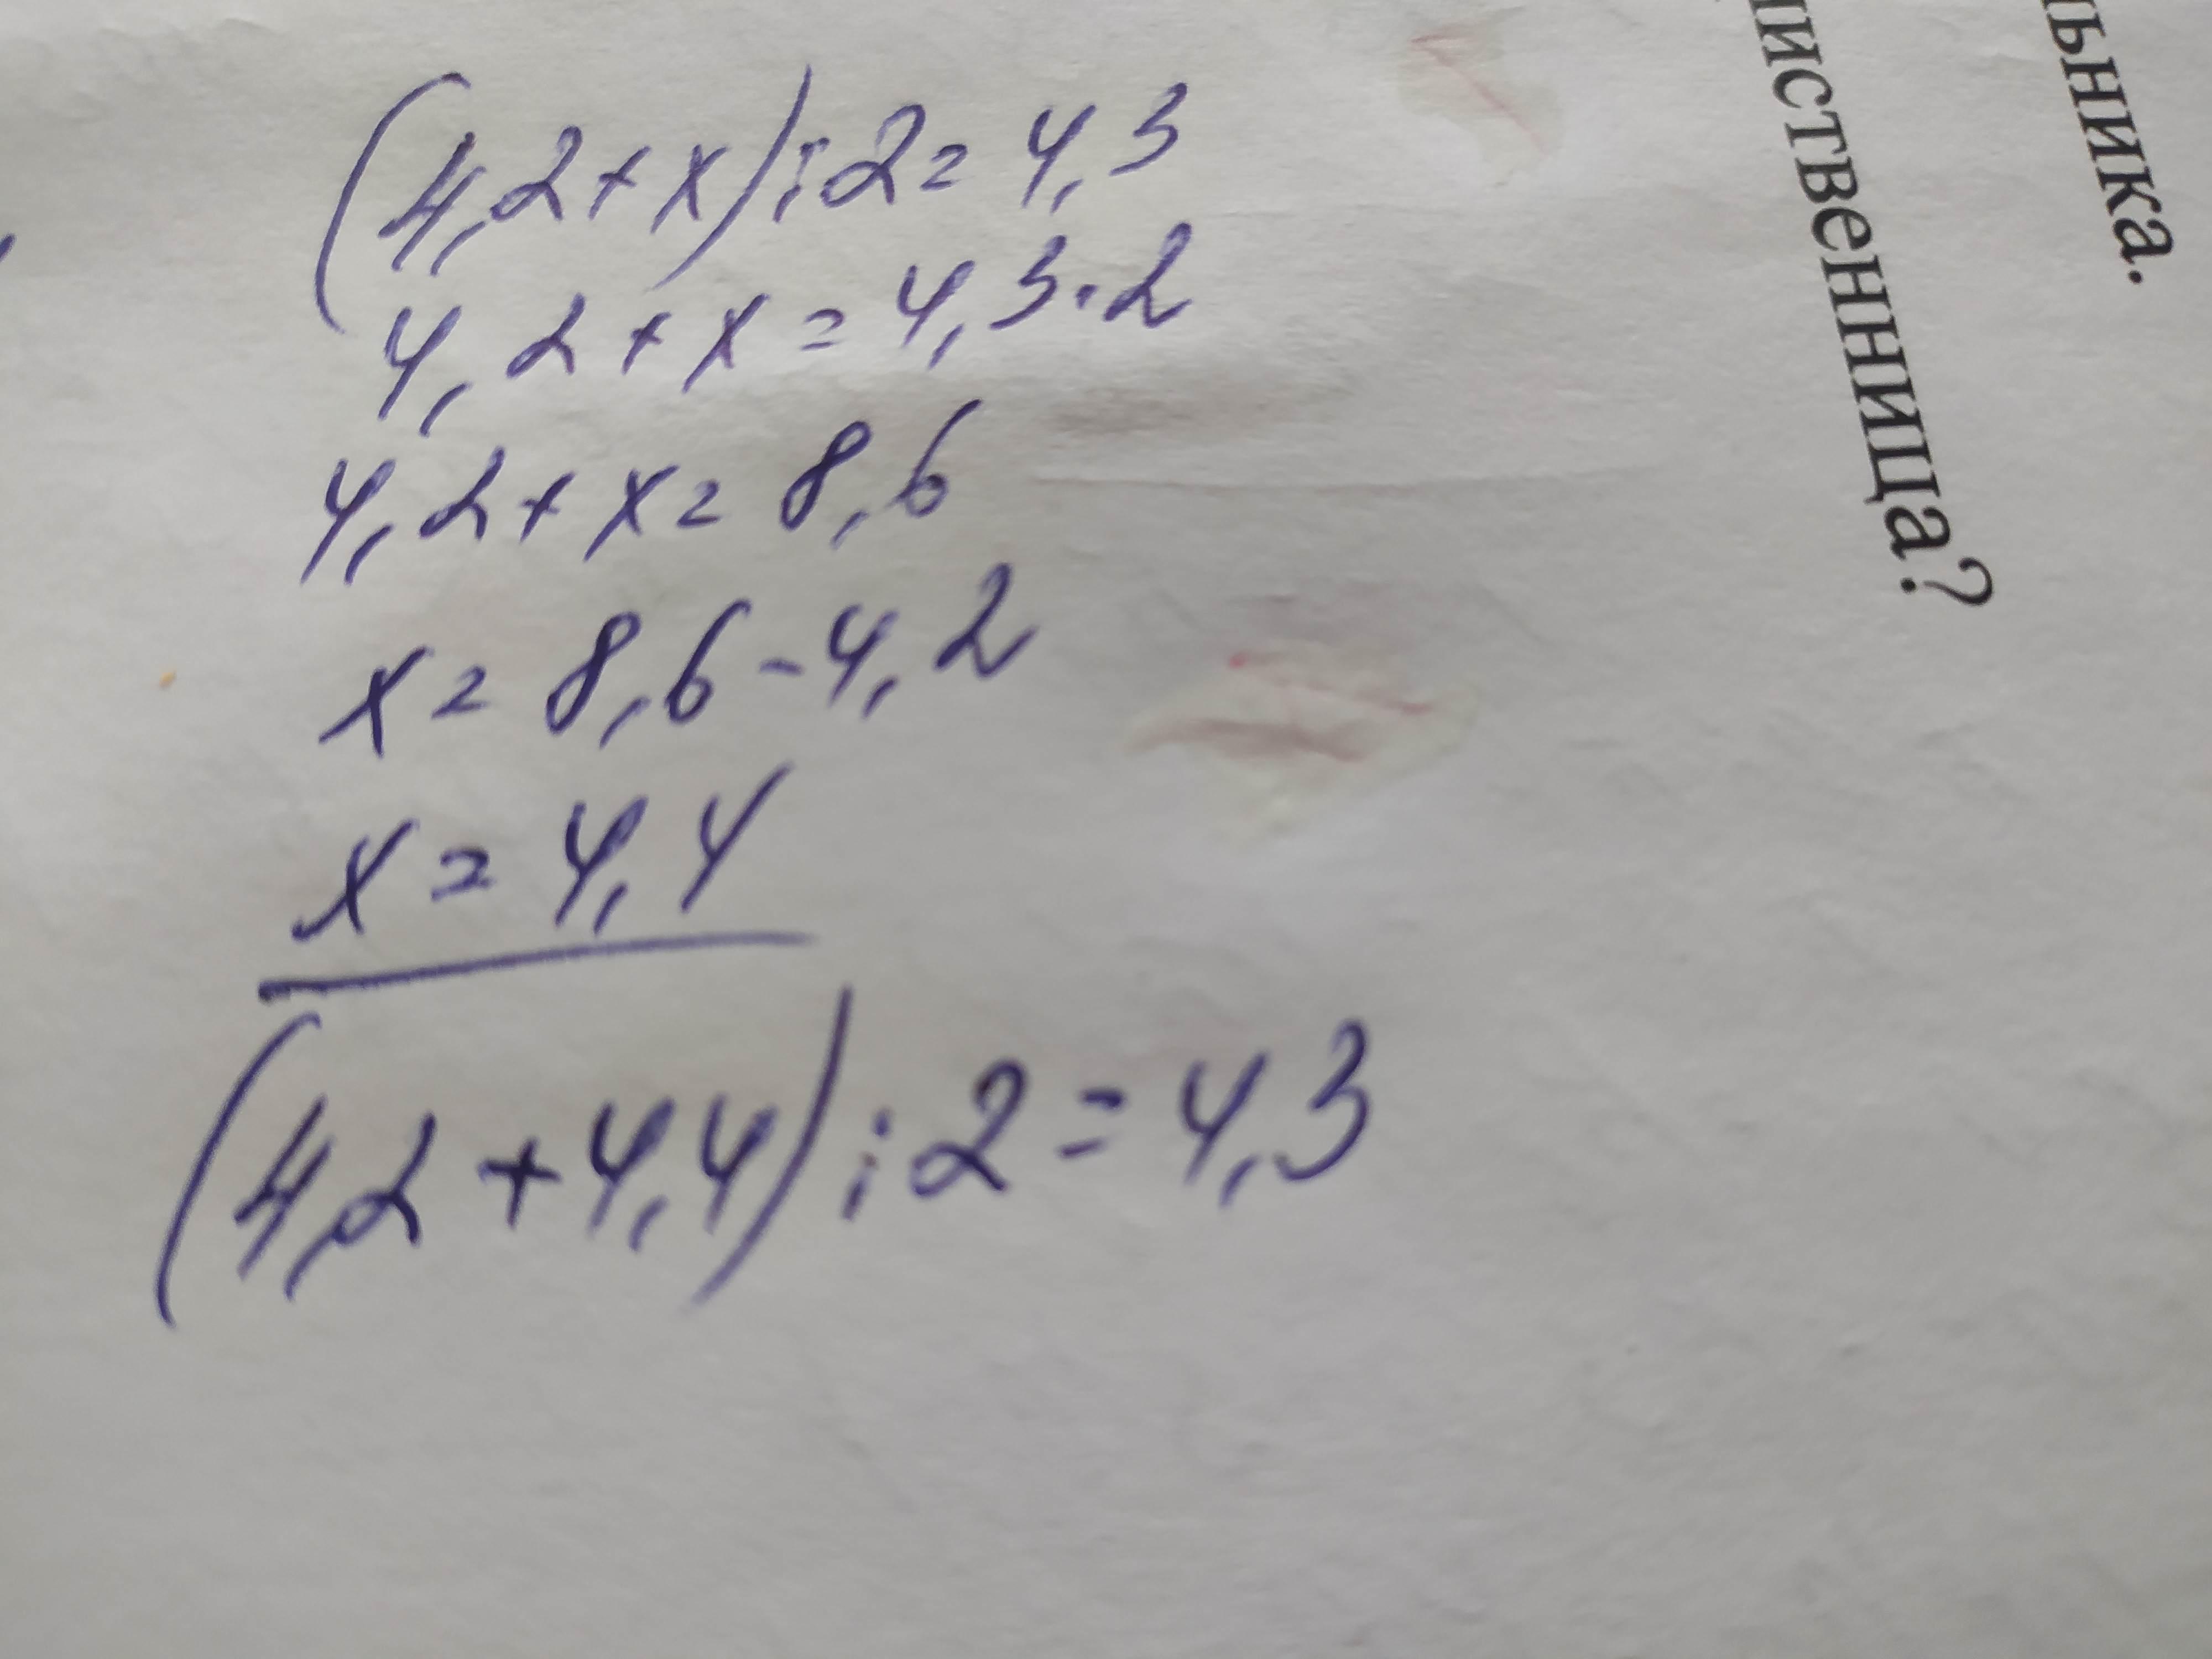 (4,2+x):2=4,3
4,2+x=4,3·2
4,2+x=8,6
x=8,6-4,2
x=4,4
(4,2+4,4):2=4,3
льника.
лиственница?